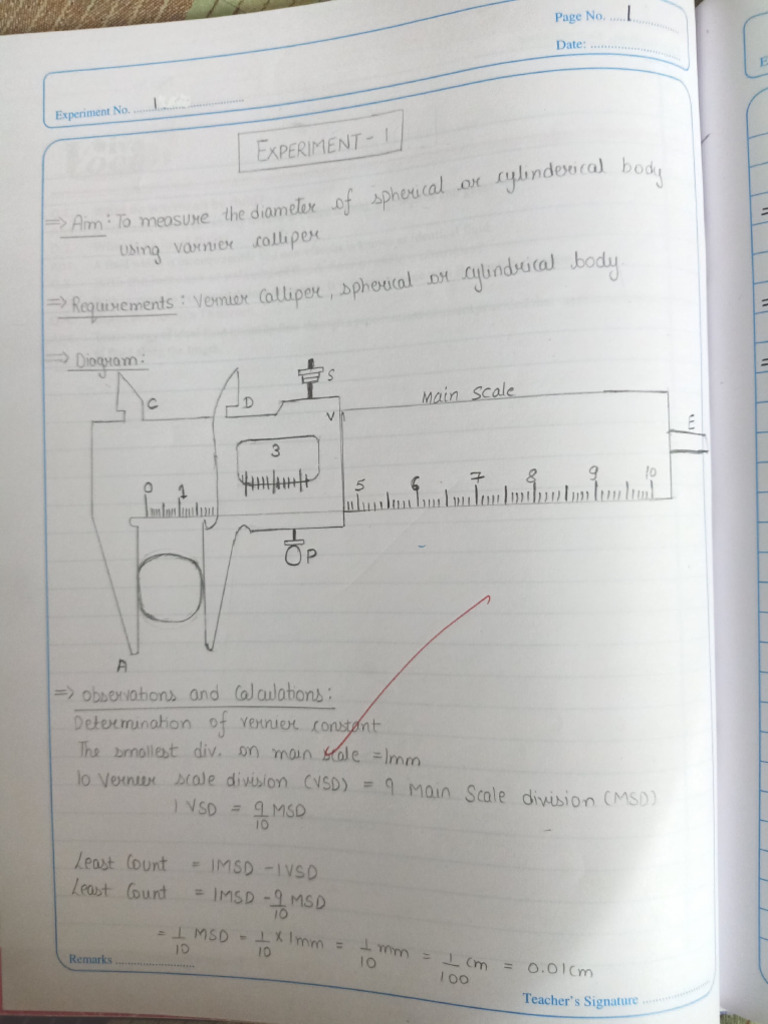 Page No. 1
Date:
Experiment No. 1
EXPERIMENT - 1
⇒ Aim: To measure the diameter of spherical or cylinderical body
using varnier calliper
⇒ Requirements: Vernier Calliper, spherical or cylindrical body
⇒ Diagram:
C
D
S
V
Main Scale
E
3
0 1
5 6 7 8 9 10
P
A
⇒ Observations and Calculations:
Determination of vernier constant
The smallest div. on main scale = 1mm
10 Vernier scale division (VSD) = 9 Main Scale division (MSD)
1 VSD = 9/10 MSD
Least Count = 1MSD - 1VSD
Least Count = 1MSD - 9/10 MSD
= 1/10 MSD = 1/10 × 1mm = 1/10 mm = 1/100 cm = 0.01cm
Remarks
Teacher's Signature